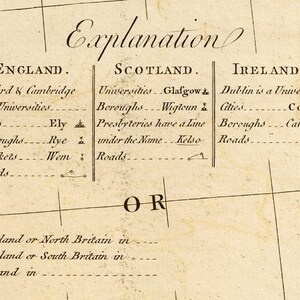 Explanation
ENGLAND. SCOTLAND. IRELAND
rd & Cambridge Universities . Glasgow Dublin is a Univer
Universities...... Boroughs . Wigtoun Cities.....
s.....Ely Presbyteries have a Line Boroughs..... Ca
roughs..Rye under the Name . Kelso Roads......
kets.....Wem Roads.....
ds....
OR
land or North Britain in ....
land or South Britain in ....
land in ....